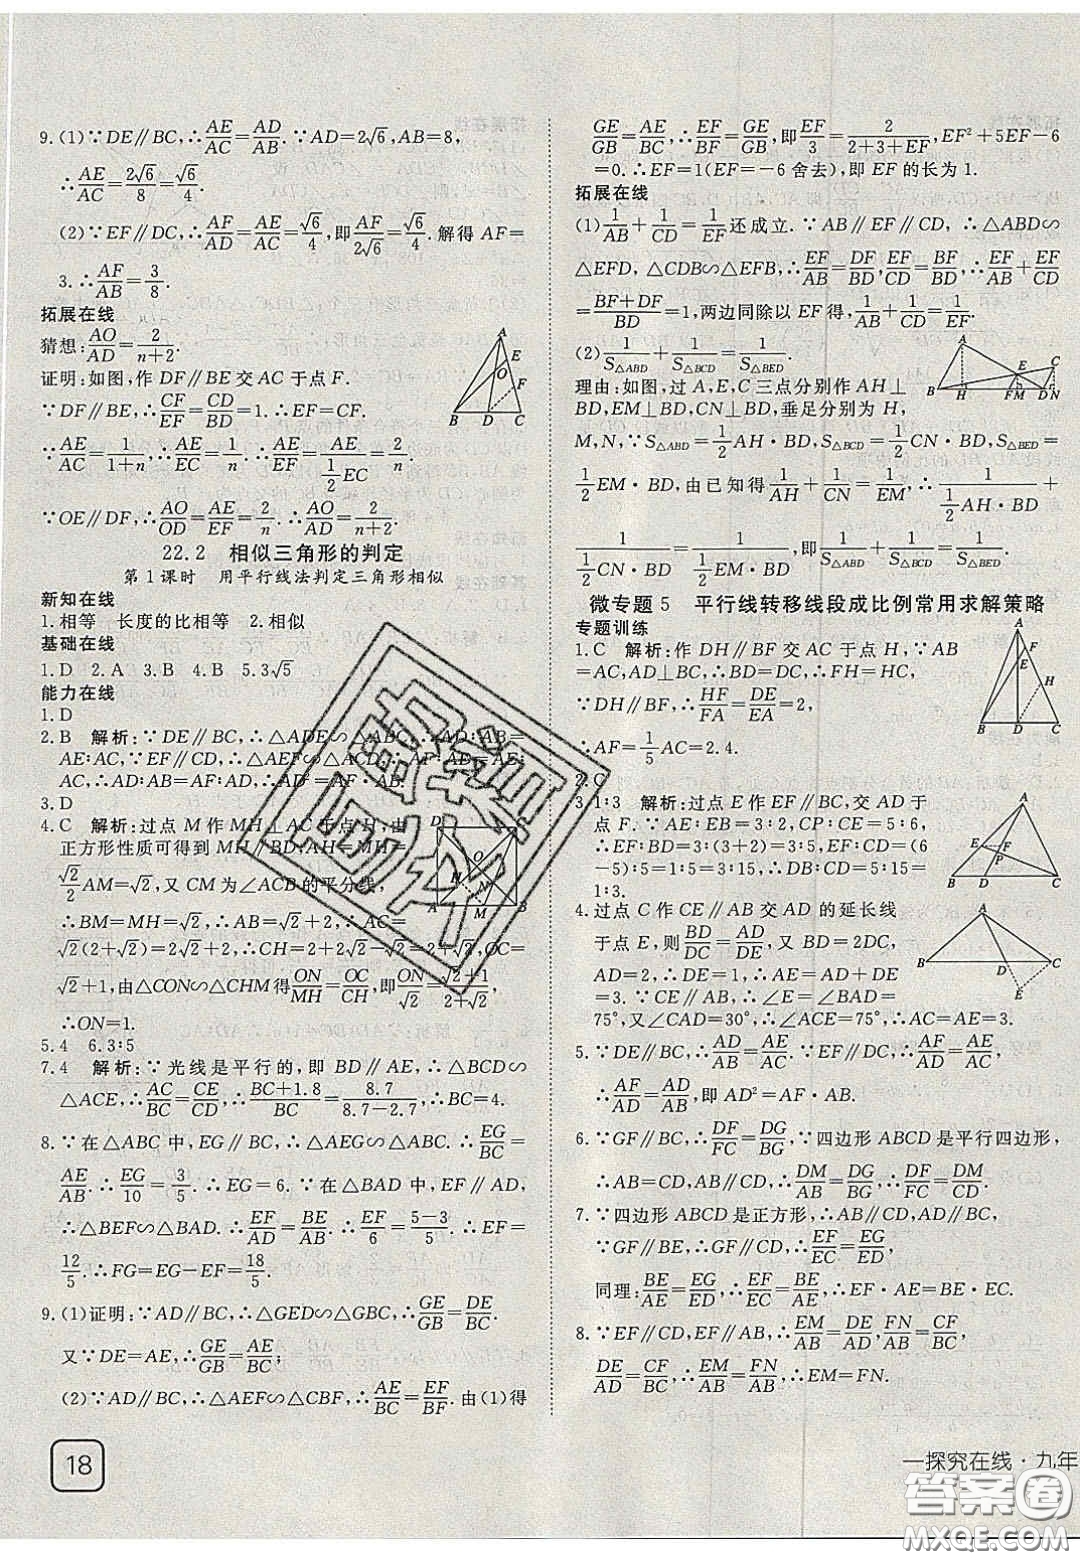 9.(1)∵DE∥BC,∴AE/AC=AD/AB.∵AD=2√6,AB=8,
∴AE/AC=2√6/8=√6/4.
(2)∵EF∥DC,∴AF/AD=AE/AC=√6/4,即AF/2√6=√6/4.解得AF=
3.∴AF/AB=3/8.
拓展在线
猜想:AO/AD=2/(n+2).
证明:如图,作DF∥BE交AC于点F.
∵DF∥BE,∴CF/EF=CD/BD=1.∴EF=CF.
∵AE/AC=1/(1+n),∴AE/EC=1/n.∴AE/EF=AE/(1/2 EC)=2/n.
∵OE∥DF,∴AO/OD=AE/EF=2/n.∴AO/AD=2/(n+2).
22.2 相似三角形的判定
第1课时 用平行线法判定三角形相似
新知在线
1.相等 长度的比相等 2.相似
基础在线
1.D 2.A 3.B 4.B 5.3√5
能力在线
1.D
2.B 解析:∵DE∥BC,∴△ADE∽△ABC.∴AD:AB=
AE:AC,∵EF∥CD,∴△AEF∽△ACD.∴AE:AC=
AF:AD.∴AD:AB=AF:AD.∴AD²=AF·AB.
3.D
4.C 解析:过点M作MH⊥AC于点H,由
正方形性质可得到MH∥BD.AH=MH=
√2/2AM=√2,又CM为∠ACB的平分线,
∴BM=MH=√2.∴AB=√2+2.∴AC=
√2(2+√2)=2√2+2.∴CH=2+√2,OC=
√2+1,由△CON∽△CHM得ON/MH=OC/CH,即ON/√2=(√2+1)/(2+√2).
∴ON=1.
5.4 6.3:5
7.4 解析:∵光线是平行的,即BD∥AE,∴△BCD∽
△ACE,∴AC/BC=CE/CD,∴(BC+1.8)/BC=8.7/(8.7-2.7),∴BC=4.
8.∵在△ABC中,EG∥BC,∴△AEG∽△ABC.∴EG/BC=
AE/AB.∴EG/10=3/5.∴EG=6.∵在△BAD中,EF∥AD,
∴△BEF∽△BAD.∴EF/AD=BE/AB.∴EF/6=(5-3)/5.∴EF=
12/5.∴FG=EG-EF=18/5.
9.(1)证明:∵AD∥BC,∴△GED∽△GBC,∴GE/GB=DE/BC.
又∵DE=AE,∴GE/GB=AE/BC;
(2)∵AD∥BC,∴△AEF∽△CBF,∴AE/BC=EF/BF.由(1)得
18
GE/GB=AE/BC,∴EF/BF=GE/GB,即EF/3=2/(2+3+EF),EF²+5EF-6
=0.∴EF=1(EF=-6舍去),即EF的长为1.
拓展在线
(1)1/AB+1/CD=1/EF还成立.∵AB∥EF∥CD,∴△ABD∽
△EFD,△CDB∽△EFB,∴EF/AB=DF/BD,EF/CD=BF/BD,∴EF/AB+EF/CD
=(BF+DF)/BD=1,两边同除以EF得,1/AB+1/CD=1/EF.
(2)1/S△ABD+1/S△BCD=1/S△BED.
理由:如图,过A,E,C三点分别作AH⊥
BD,EM⊥BD,CN⊥BD,垂足分别为H,
M,N,∵S△ABD=1/2AH·BD,S△BCD=1/2CN·BD,S△BED=
1/2EM·BD,由已知得1/AH+1/CN=1/EM,∴1/(1/2AH·BD)+
1/(1/2CN·BD)=1/(1/2EM·BD),即1/S△ABD+1/S△BCD=1/S△BED.
微专题5 平行线转移线段成比例常用求解策略
专题训练
1.C 解析:作DH∥BF交AC于点H,∵AB
=AC,AD⊥BC,∴BD=DC,∴FH=HC,
∵DH∥BF,∴HF/FA=DE/EA=2,
∴AF=1/5AC=2.4.
2.C
3.1:3 解析:过点E作EF∥BC,交AD于
点F.∵AE:EB=3:2,CP:CE=5:6,
∴EF:BD=AE:AB=3:5,EF:CD=(6
-5):5=1:5=3:15.∴DB:CD=5:15=
1:3.
4.过点C作CE∥AB交AD的延长线
于点E,则BD/DC=AD/DE,又BD=2DC,
AD=2,∴DE=1.∵CE∥AB,
∠BAD=75°,∴∠E=∠BAD=
75°,又∠CAD=30°,∴∠ACE=75°,∴AC=AE=3.
5.∵DE∥BC,∴AD/AB=AE/AC,∵EF∥CD,∴AF/AD=AE/AC,
∴AF/AD=AD/AB,即AD²=AF·AB.
6.∵GF∥BC,∴DF/FC=DG/BG,∵四边形ABCD是平行四边形,
∴AB=CD,AB∥CD,∴DM/AB=DM/CD=DG/BG,∴DF/FC=DM/CD.
7.∵四边形ABCD是正方形,∴AB∥CD,AD∥BC,
∵GF∥BE,∴GF∥AD,∴EF/EC=EG/ED,
同理:BE/AE=EG/ED,∴EF/EC=BE/AE,∴EF·AE=BE·EC.
8.∵EF∥CD,EF∥AB,∴EM/AB=DE/AD,FN/AB=CF/BC,
DE/AD=CF/BC,∴EM/AB=FN/AB,∴EM=FN.
一探究在线·九年
答案圈
MXQE.COM